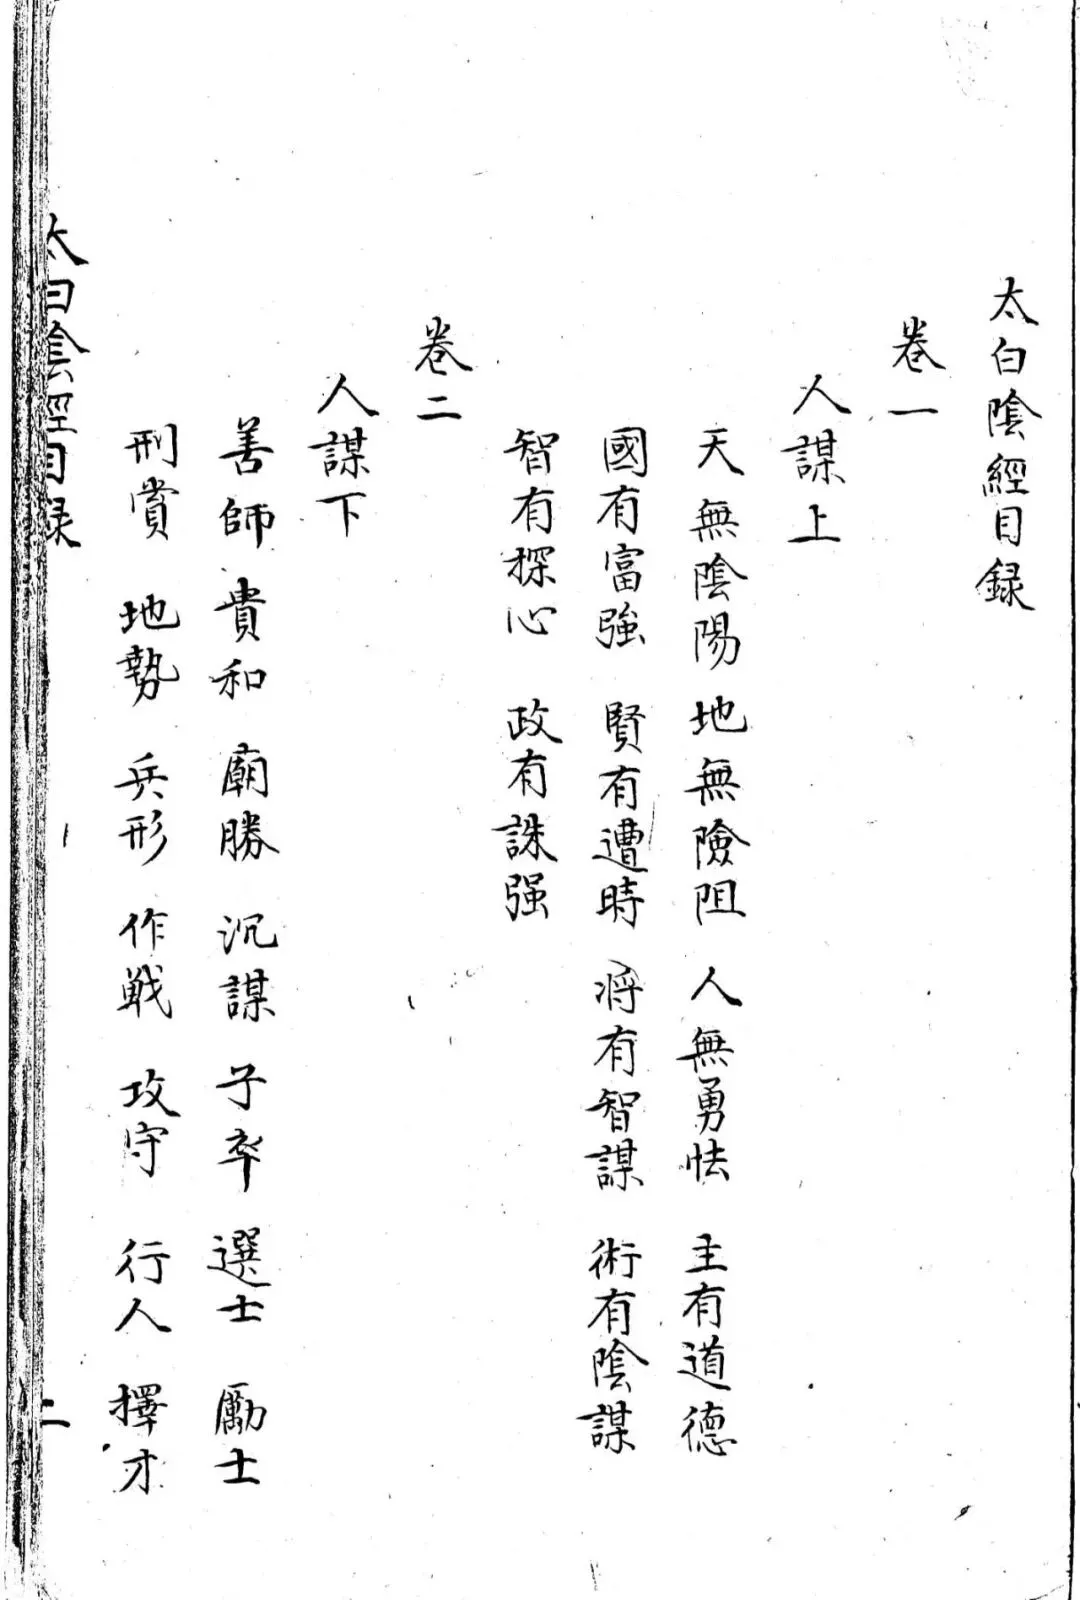 太白陰經目録
卷一
人謀上
天無陰陽 地無險阻 人無勇怯 主有道德
國有富強 賢有遭時 将有智謀 術有陰謀
智有探心 政有誅强
卷二
人謀下
善師 貴和 廟勝 沉謀 子卒 選士 勵士
刑賞 地勢 兵形 作戦 攻守 行人 擇才
太白陰經目録